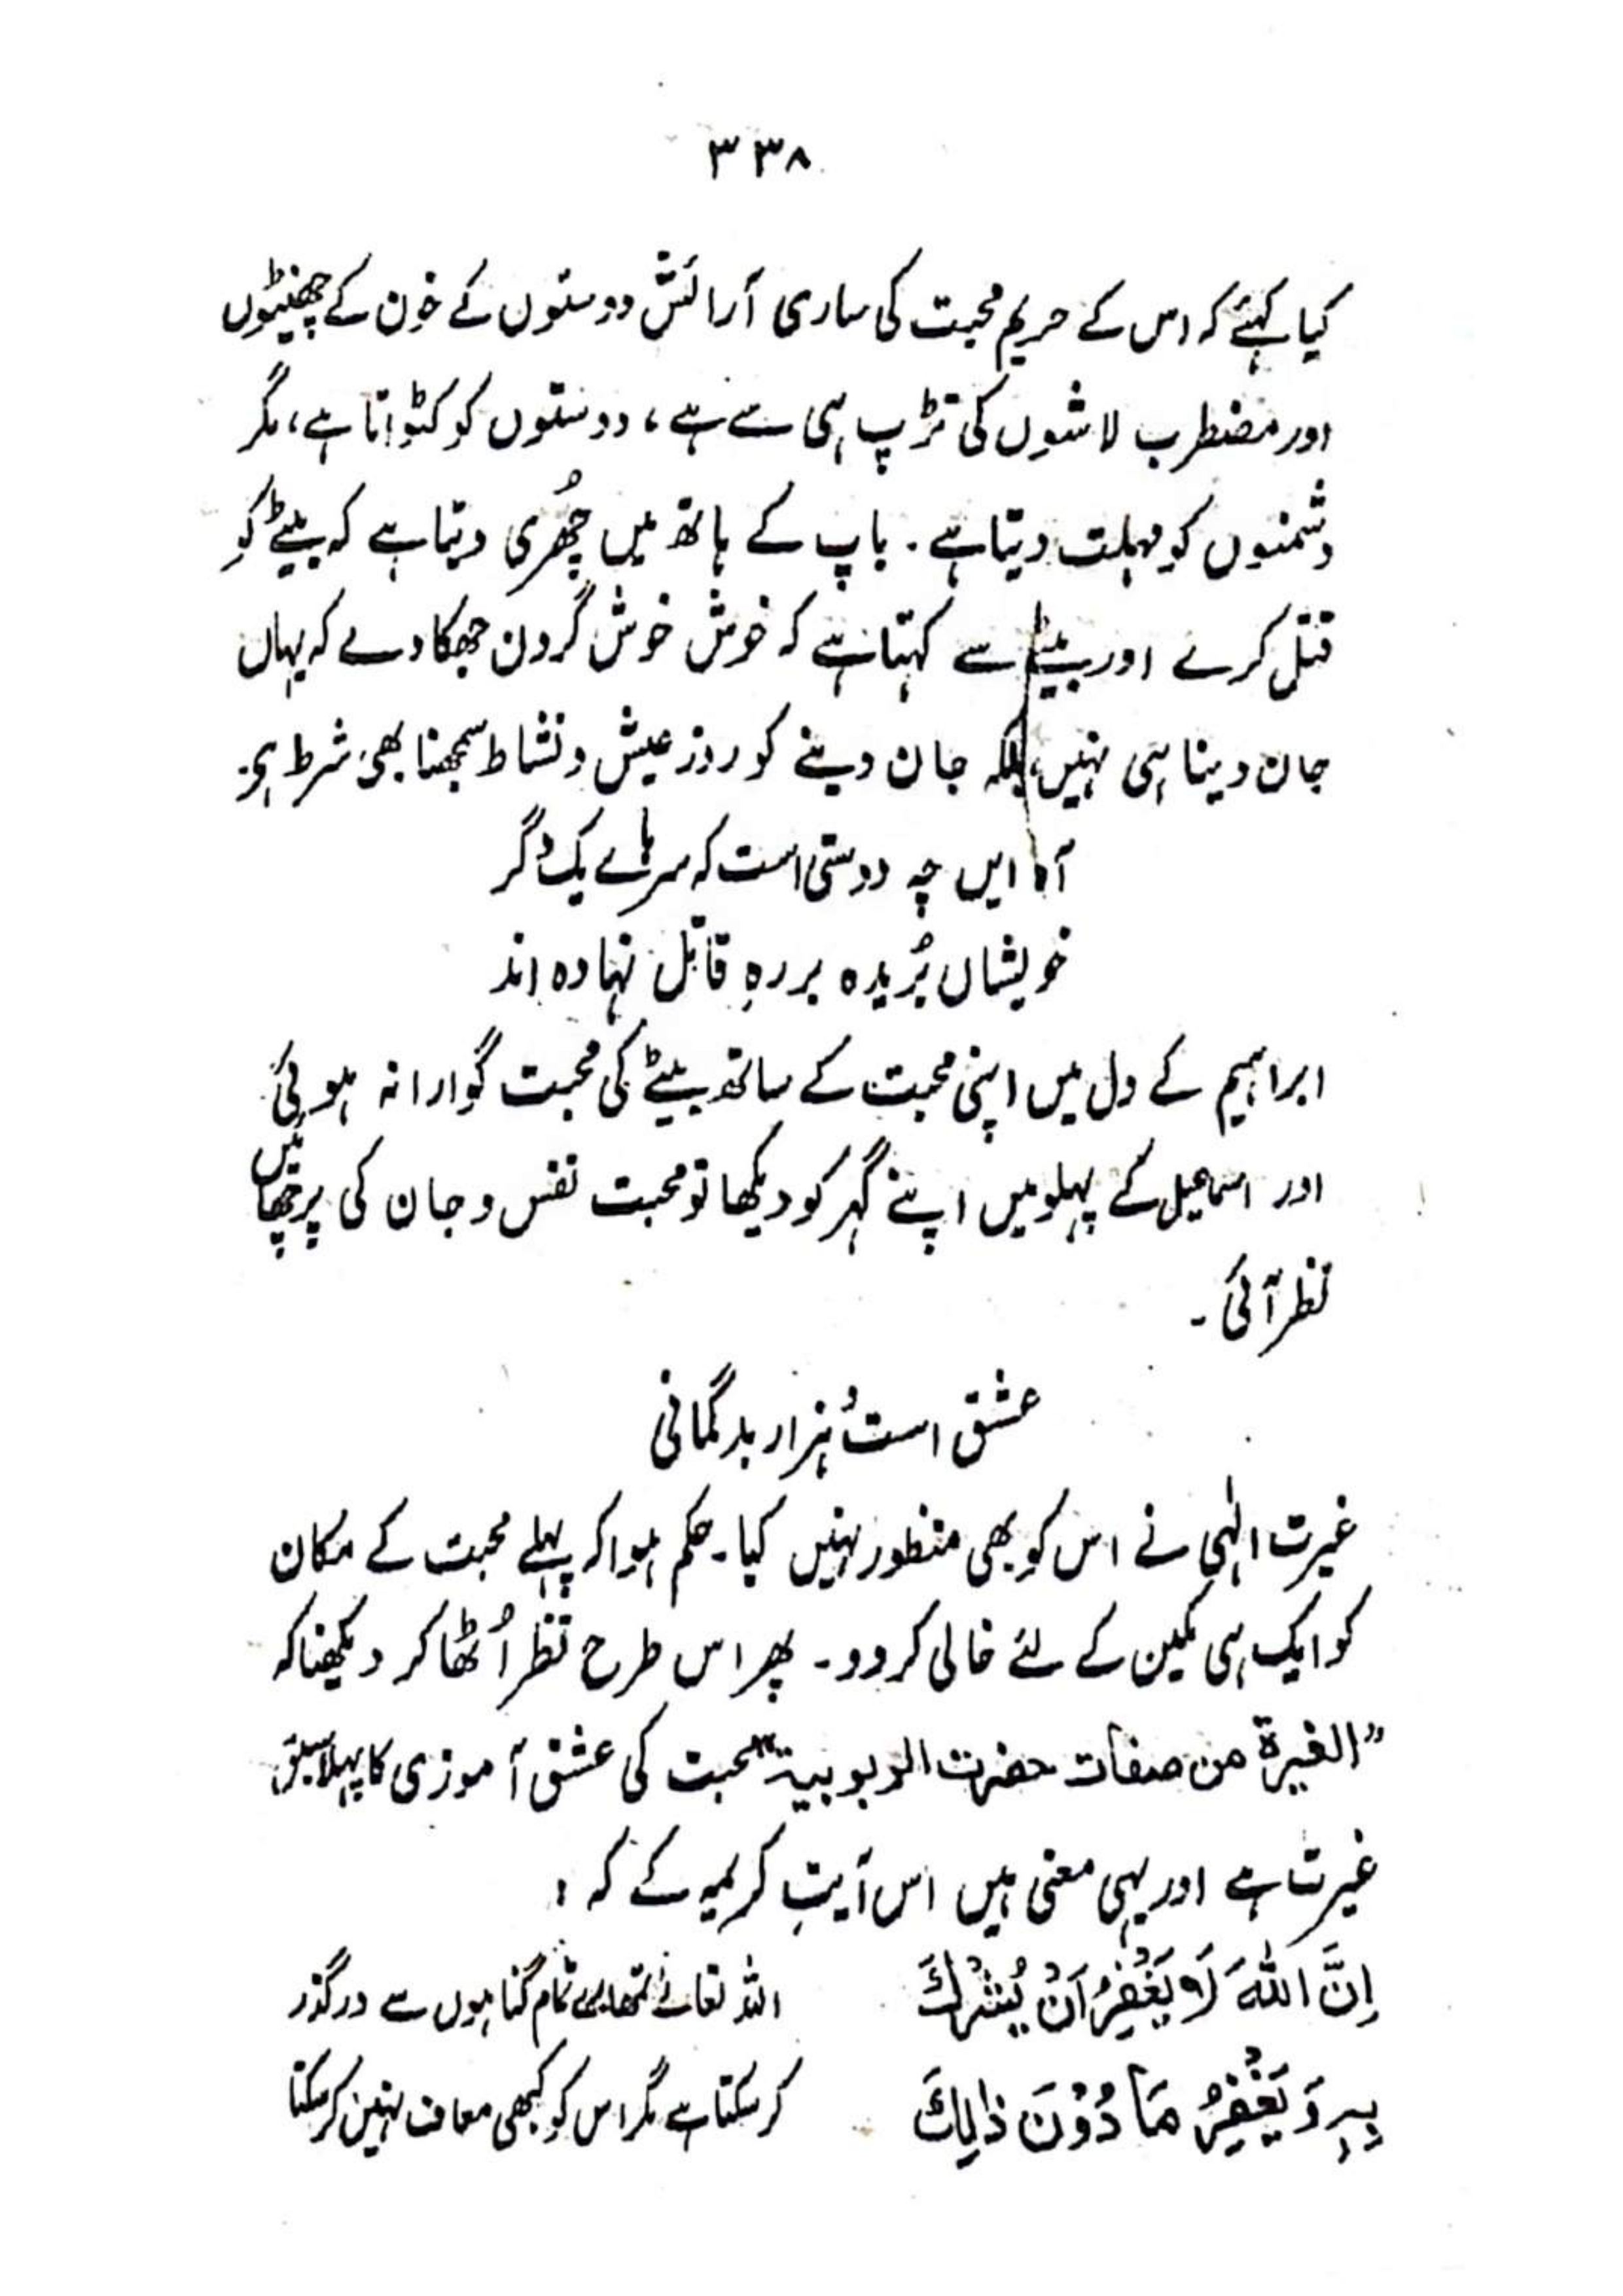 ۳۳۸
کیا کہئے کہ اس کے حریم محبت کی ساری آرائش دوستوں کے خون کے چھینٹوں
اور مضطرب لاشوں کی تڑپ ہی سے ہے، دوستوں کو کٹواتا ہے، مگر
دشمنوں کو مہلت دیتا ہے۔ باپ کے ہاتھ میں چھُری دیتا ہے کہ بیٹے کو
قتل کرے اور بیٹے سے کہتا ہے کہ خوش خوش گردن جھکا دے کہ یہاں
جان دینا ہی نہیں، بلکہ جان دینے کو روز عیش و نشاط سمجھنا بھی شرط ہے۔
آہ ایں چہ دوستی است کہ سرہائے یک دگر
خویشاں بُریدہ بر رہِ قاتل نہادہ اند
ابراہیم کے دل میں اپنی محبت کے ساتھ بیٹے کی محبت گوارا نہ ہوئی
اور اسماعیل کے پہلو میں اپنے گہر کو دیکھا تو محبت نفس و جان کی پرچھائیں
نظر آئی۔
عشق است و ہزار بدگمانی
غیرت الٰہی نے اس کو بھی منظور نہیں کیا۔ حکم ہوا کہ پہلے محبت کے مکان
کو ایک ہی مکین کے لئے خالی کر دو۔ پھر اس طرح نظر اُٹھا کر دیکھنا کہ
"الغیرة من صفات حضرت الربوبیة" محبت کی عشق آموزی کا پہلا سبق
غیرت ہے اور یہی معنی ہیں اس آیتِ کریمہ کے کہ:
اِنَّ اللّٰہَ لَا یَغْفِرُ اَنْ یُّشْرَكَ
بِہٖ وَ یَغْفِرُ مَا دُوْنَ ذٰلِكَ
اللہ تعالےٰ تمھارے تمام گناہوں سے درگذر
کر سکتا ہے مگر اس کو کبھی معاف نہیں کر سکتا